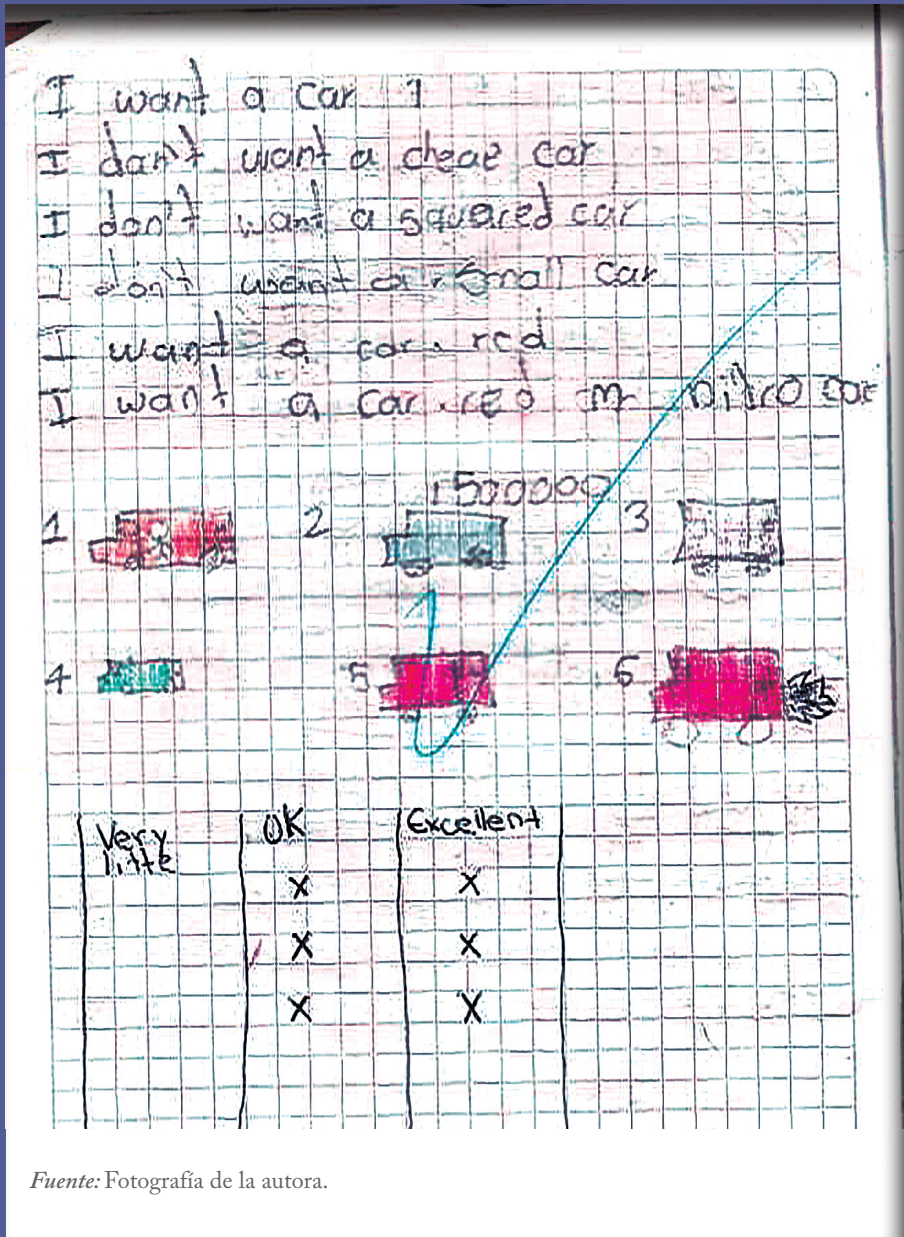 I want a car 1
I don't want a cheae car
I don't want a squared car
I don't want a small car
I want a car red
I want a car red
1500000
1 2 3
4 5 6
Very litte OK Excellent
X X
X X
X X
Fuente: Fotografía de la autora.